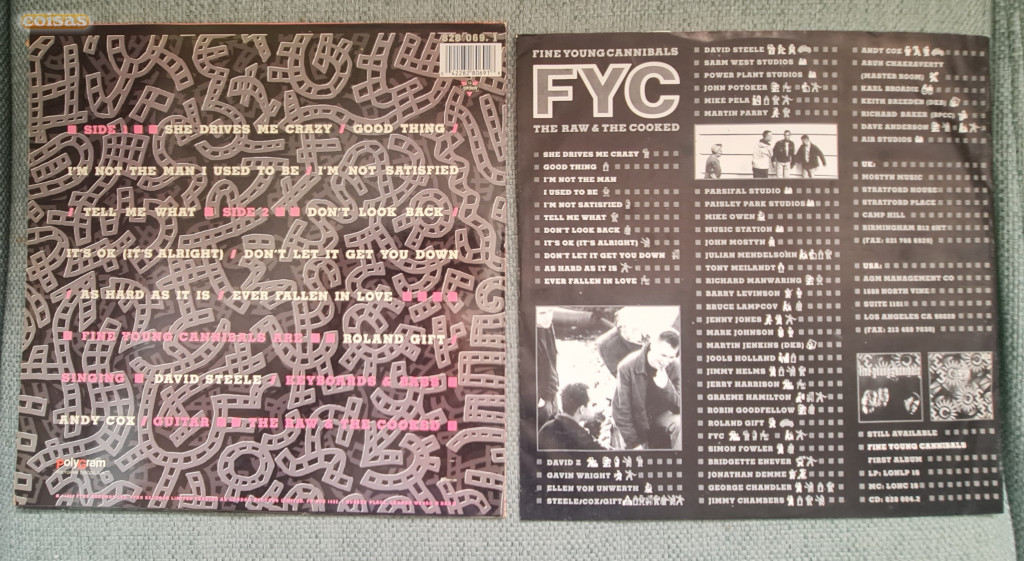 coisas
828 069. 1
SIDE 1 SHE DRIVES ME CRAZY / GOOD THING /
I'M NOT THE MAN I USED TO BE / I'M NOT SATISFIED
/ TELL ME WHAT SIDE 2 DON'T LOOK BACK /
IT'S OK (IT'S ALRIGHT) / DON'T LET IT GET YOU DOWN
/ AS HARD AS IT IS / EVER FALLEN IN LOVE
FINE YOUNG CANNIBALS ARE ROLAND GIFT /
SINGING DAVID STEELE / KEYBOARDS & BASS
ANDY COX / GUITAR THE RAW & THE COOKED
polygram
FINE YOUNG CANNIBALS
FYC
THE RAW & THE COOKED
SHE DRIVES ME CRAZY
GOOD THING
I'M NOT THE MAN
I USED TO BE
I'M NOT SATISFIED
TELL ME WHAT
DON'T LOOK BACK
IT'S OK (IT'S ALRIGHT)
DON'T LET IT GET YOU DOWN
AS HARD AS IT IS
EVER FALLEN IN LOVE
DAVID Z
GAVIN WRIGHT
ELLEN VON UNWERTH
STEELE/COX/GIFT
DAVID STEELE
SARM WEST STUDIOS
POWER PLANT STUDIOS
JOHN POTOKER
MIKE PELA
MARTIN PARRY
PARSIFAL STUDIO
PAISLEY PARK STUDIOS
MIKE OWEN
MUSIC STATION
JOHN MOSTYN
JULIAN MENDELSOHN
TONY MEILANDT
RICHARD MANWARING
BARRY LEVINSON
BRUCE LAMPCOV
JENNY JONES
MARK JOHNSON
MARTIN JENKINS (DKB)
JOOLS HOLLAND
JIMMY HELMS
JERRY HARRISON
GRAEME HAMILTON
ROBIN GOODFELLOW
ROLAND GIFT
FYC
SIMON FOWLER
BRIDGETTE ENEVER
JONATHAN DEMME
GEORGE CHANDLER
JIMMY CHAMBERS
ANDY COX
ARUN CHAKRAVERTY
(MASTER ROOM)
KARL BROADIE
KEITH BREEDEN (DKB)
RICHARD BAKER (BPCC)
DAVE ANDERSON
AIR STUDIOS
UK:
MOSTYN MUSIC
STRATFORD HOUSE
STRATFORD PLACE
CAMP HILL
BIRMINGHAM B12 0HT
USA:
AGM MANAGEMENT CO
SUITE 1101
LOS ANGELES CA 90028
STILL AVAILABLE
FINE YOUNG CANNIBALS
FIRST ALBUM
LP: LONLP 16
MC: LONC 16
CD: 828 004.2